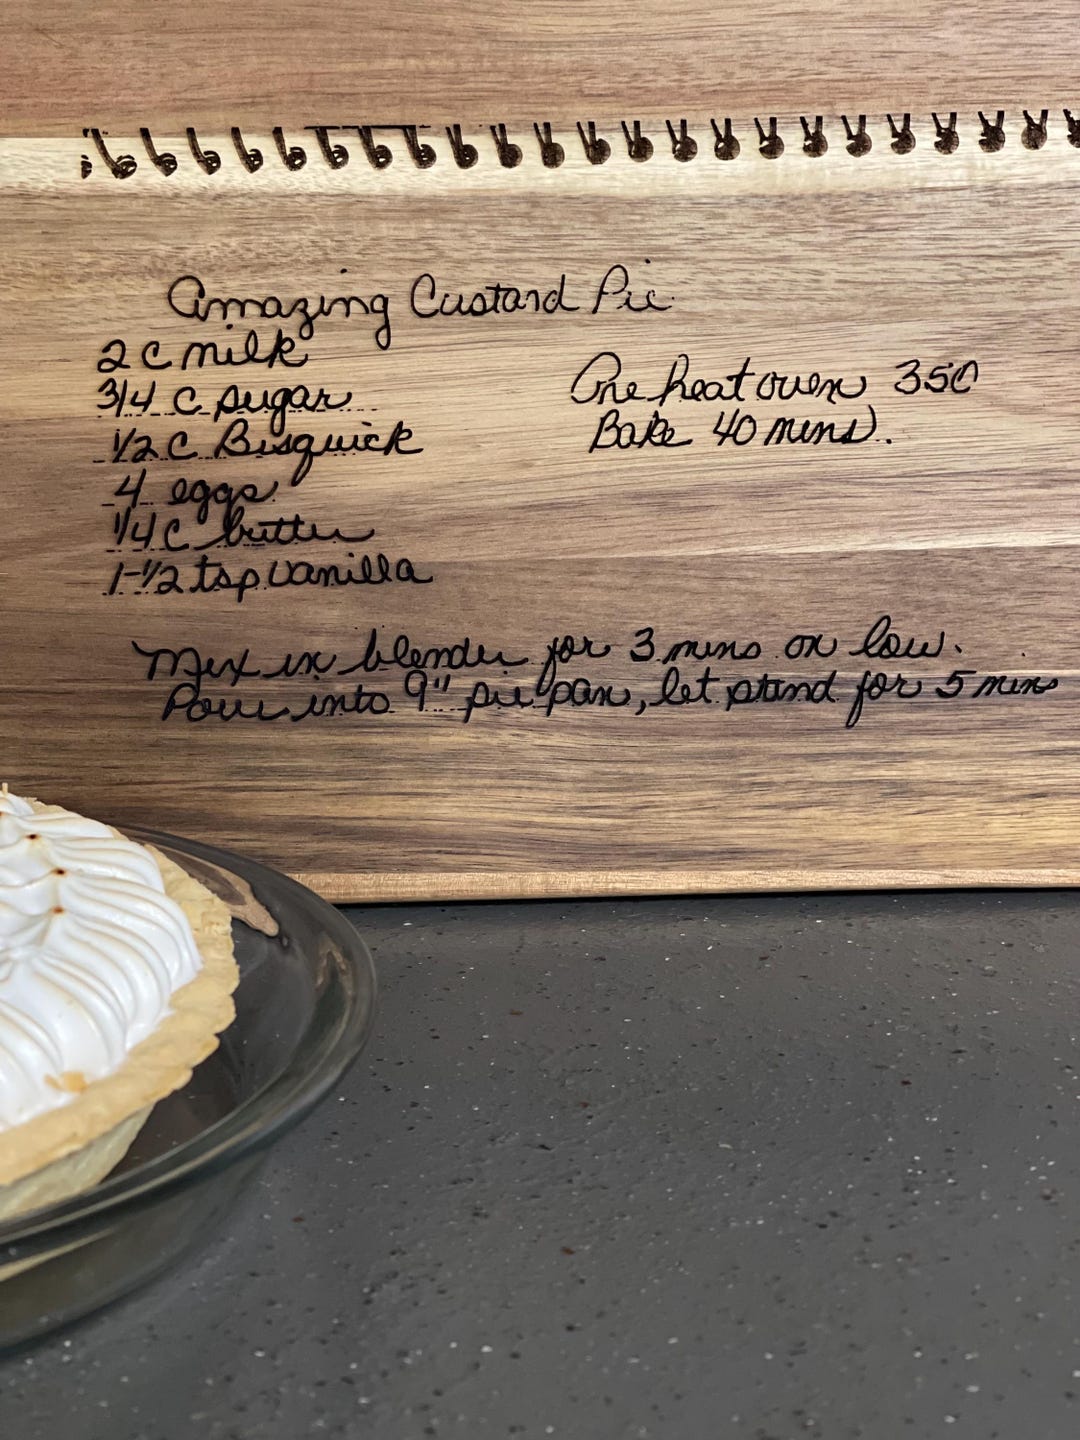 Amazing Custard Pie
2 C milk
3/4 C sugar
1/2 C Bisquick
4 eggs
1/4 C butter
1-1/2 tsp vanilla
Pre heat oven 350
Bake 40 mins.
Mix in blender for 3 mins on low.
Pour into 9" pie pan, let stand for 5 mins